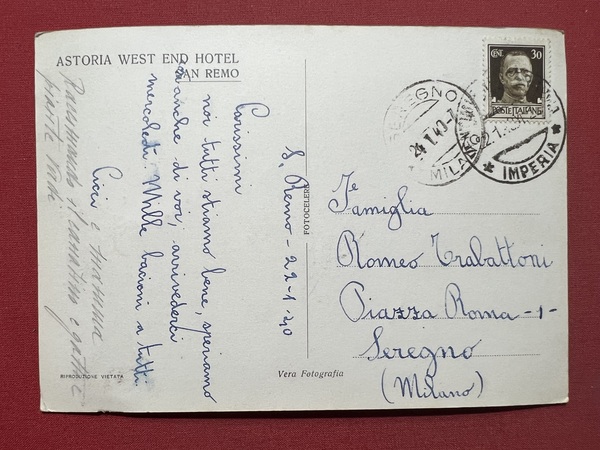 ASTORIA WEST END HOTEL
SAN REMO
S. Remo - 22-1-40
Carissimi
noi tutti stiamo bene, speriamo
anche di voi, arrivederci
mercoledì. Mille bacioni a tutti
Cicci e mamma
piante verdi
FOTOCELERE
RIPRODUZIONE VIETATA
Vera Fotografia
CENT. 30
POSTE ITALIANE
SEREGNO
24.1.40
MILANO
IMPERIA
Famiglia
Romeo Trabattoni
Piazza Roma -1-
Seregno
(Milano)